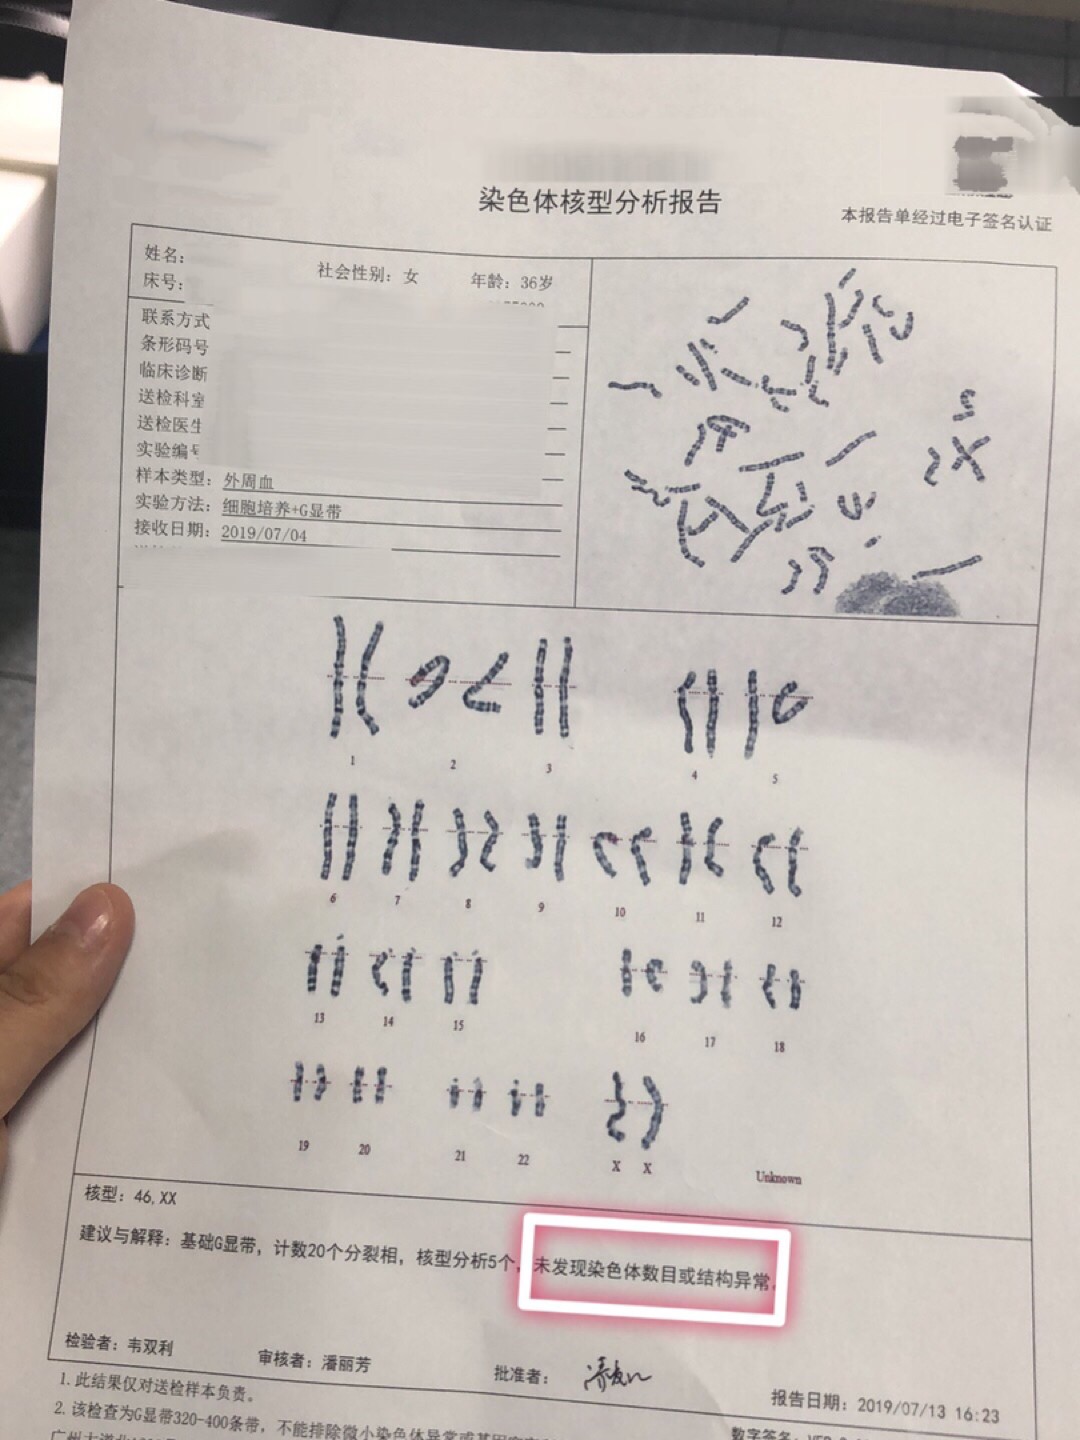 染色体核型分析报告
本报告单经过电子签名认证
姓名:
社会性别: 女
年龄: 36岁
床号:
联系方式
条形码号
临床诊断
送检科室
送检医生
实验编号
样本类型: 外周血
实验方法: 细胞培养+G显带
接收日期: 2019/07/04
1 2 3 4 5
6 7 8 9 10 11 12
13 14 15 16 17 18
19 20 21 22 X X Unknown
核型: 46,XX
建议与解释: 基础G显带, 计数20个分裂相, 核型分析5个, 未发现染色体数目或结构异常.
检验者: 韦双利
审核者: 潘丽芳
批准者:
报告日期: 2019/07/13 16:23
1.此结果仅对送检样本负责。
2.该检查为G显带320-400条带, 不能排除微小染色体异常或基因
数字签名:
广州大道北